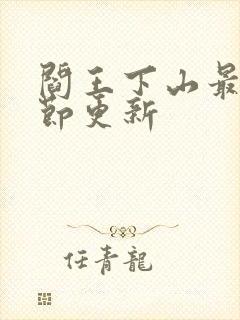 閻王下山最
節更新
任青龍